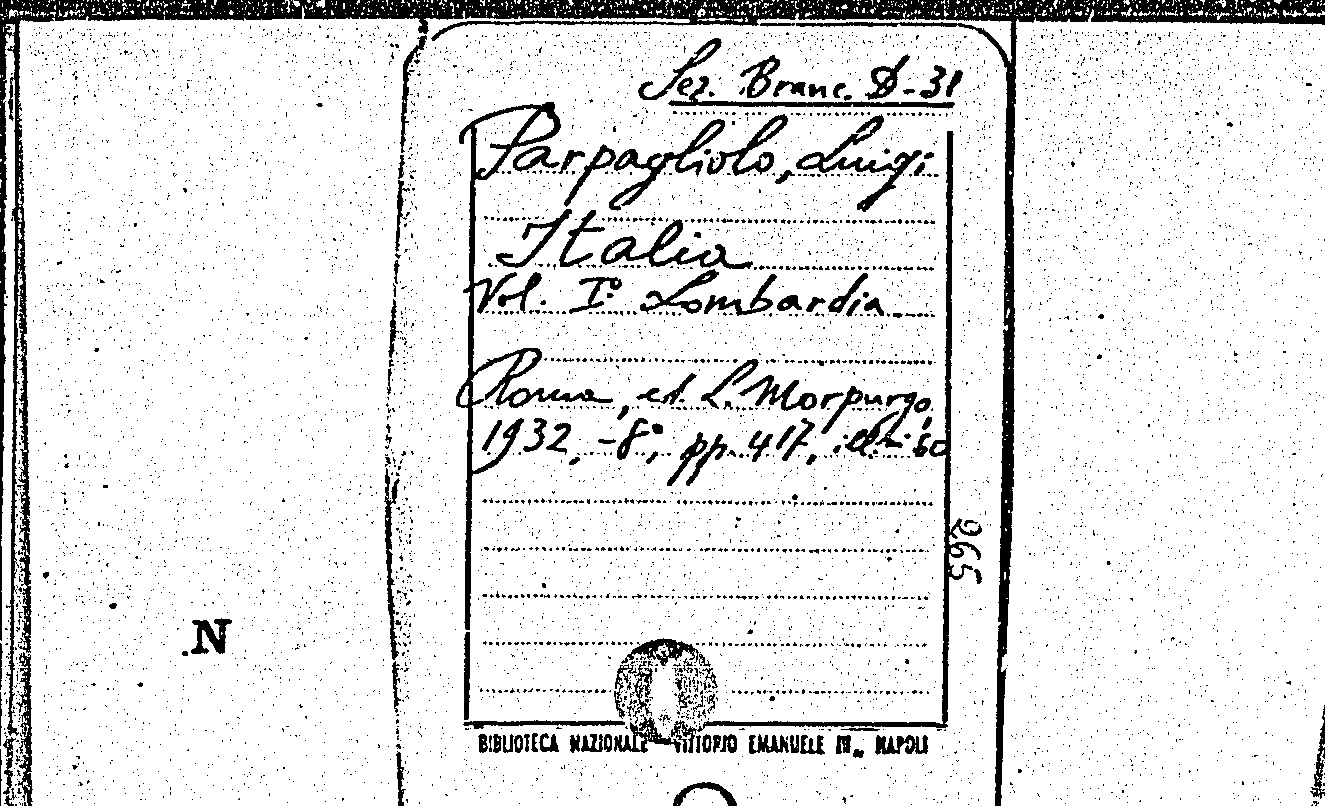 Sez. Branc. D-31
Parpagliolo, Luigi
Italia
Vol. I° Lombardia.
Roma, ed. L. Morpurgo,
1932, -8°, pp. 417, ill. 60
265
N
BIBLIOTECA NAZIONALE VITTORIO EMANUELE III., NAPOLI